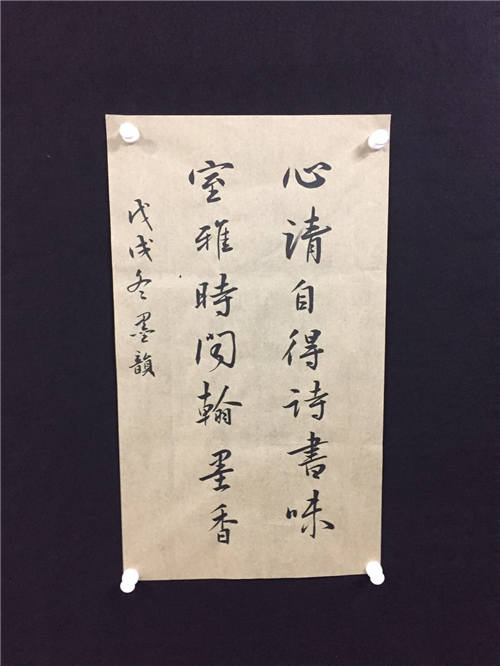 心请自得诗書味
室雅時闻翰墨香
戊戌冬墨韻